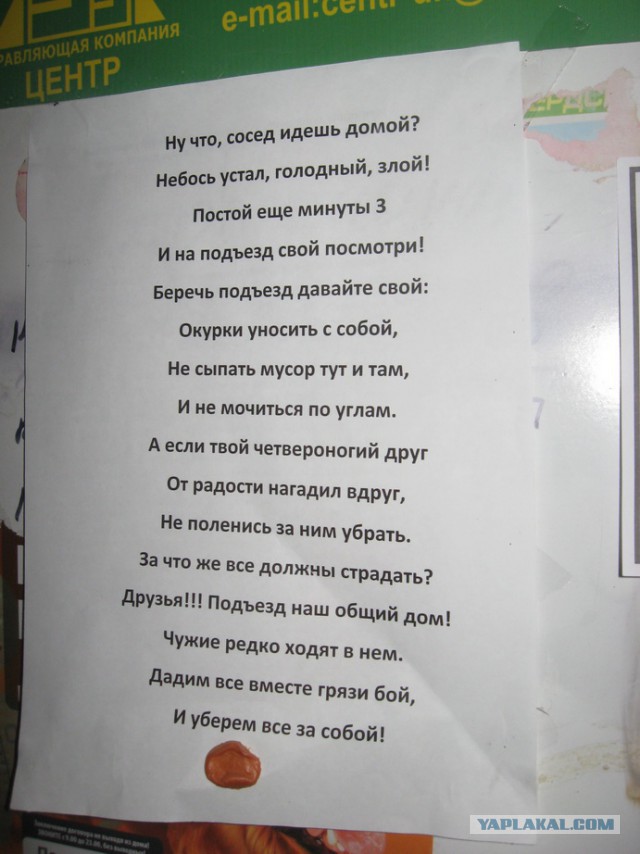 e-mail:centr-
КОМПАНИЯ
ЦЕНТР
Ну что, сосед идешь домой?
Небось устал, голодный, злой!
Постой еще минуты 3
И на подъезд свой посмотри!
Беречь подъезд давайте свой:
Окурки уносить с собой,
Не сыпать мусор тут и там,
И не мочиться по углам.
А если твой четвероногий друг
От радости нагадил вдруг,
Не поленись за ним убрать.
За что же все должны страдать?
Друзья!!! Подъезд наш общий дом!
Чужие редко ходят в нем.
Дадим все вместе грязи бой,
И уберем все за собой!
YAPLAKAL.COM